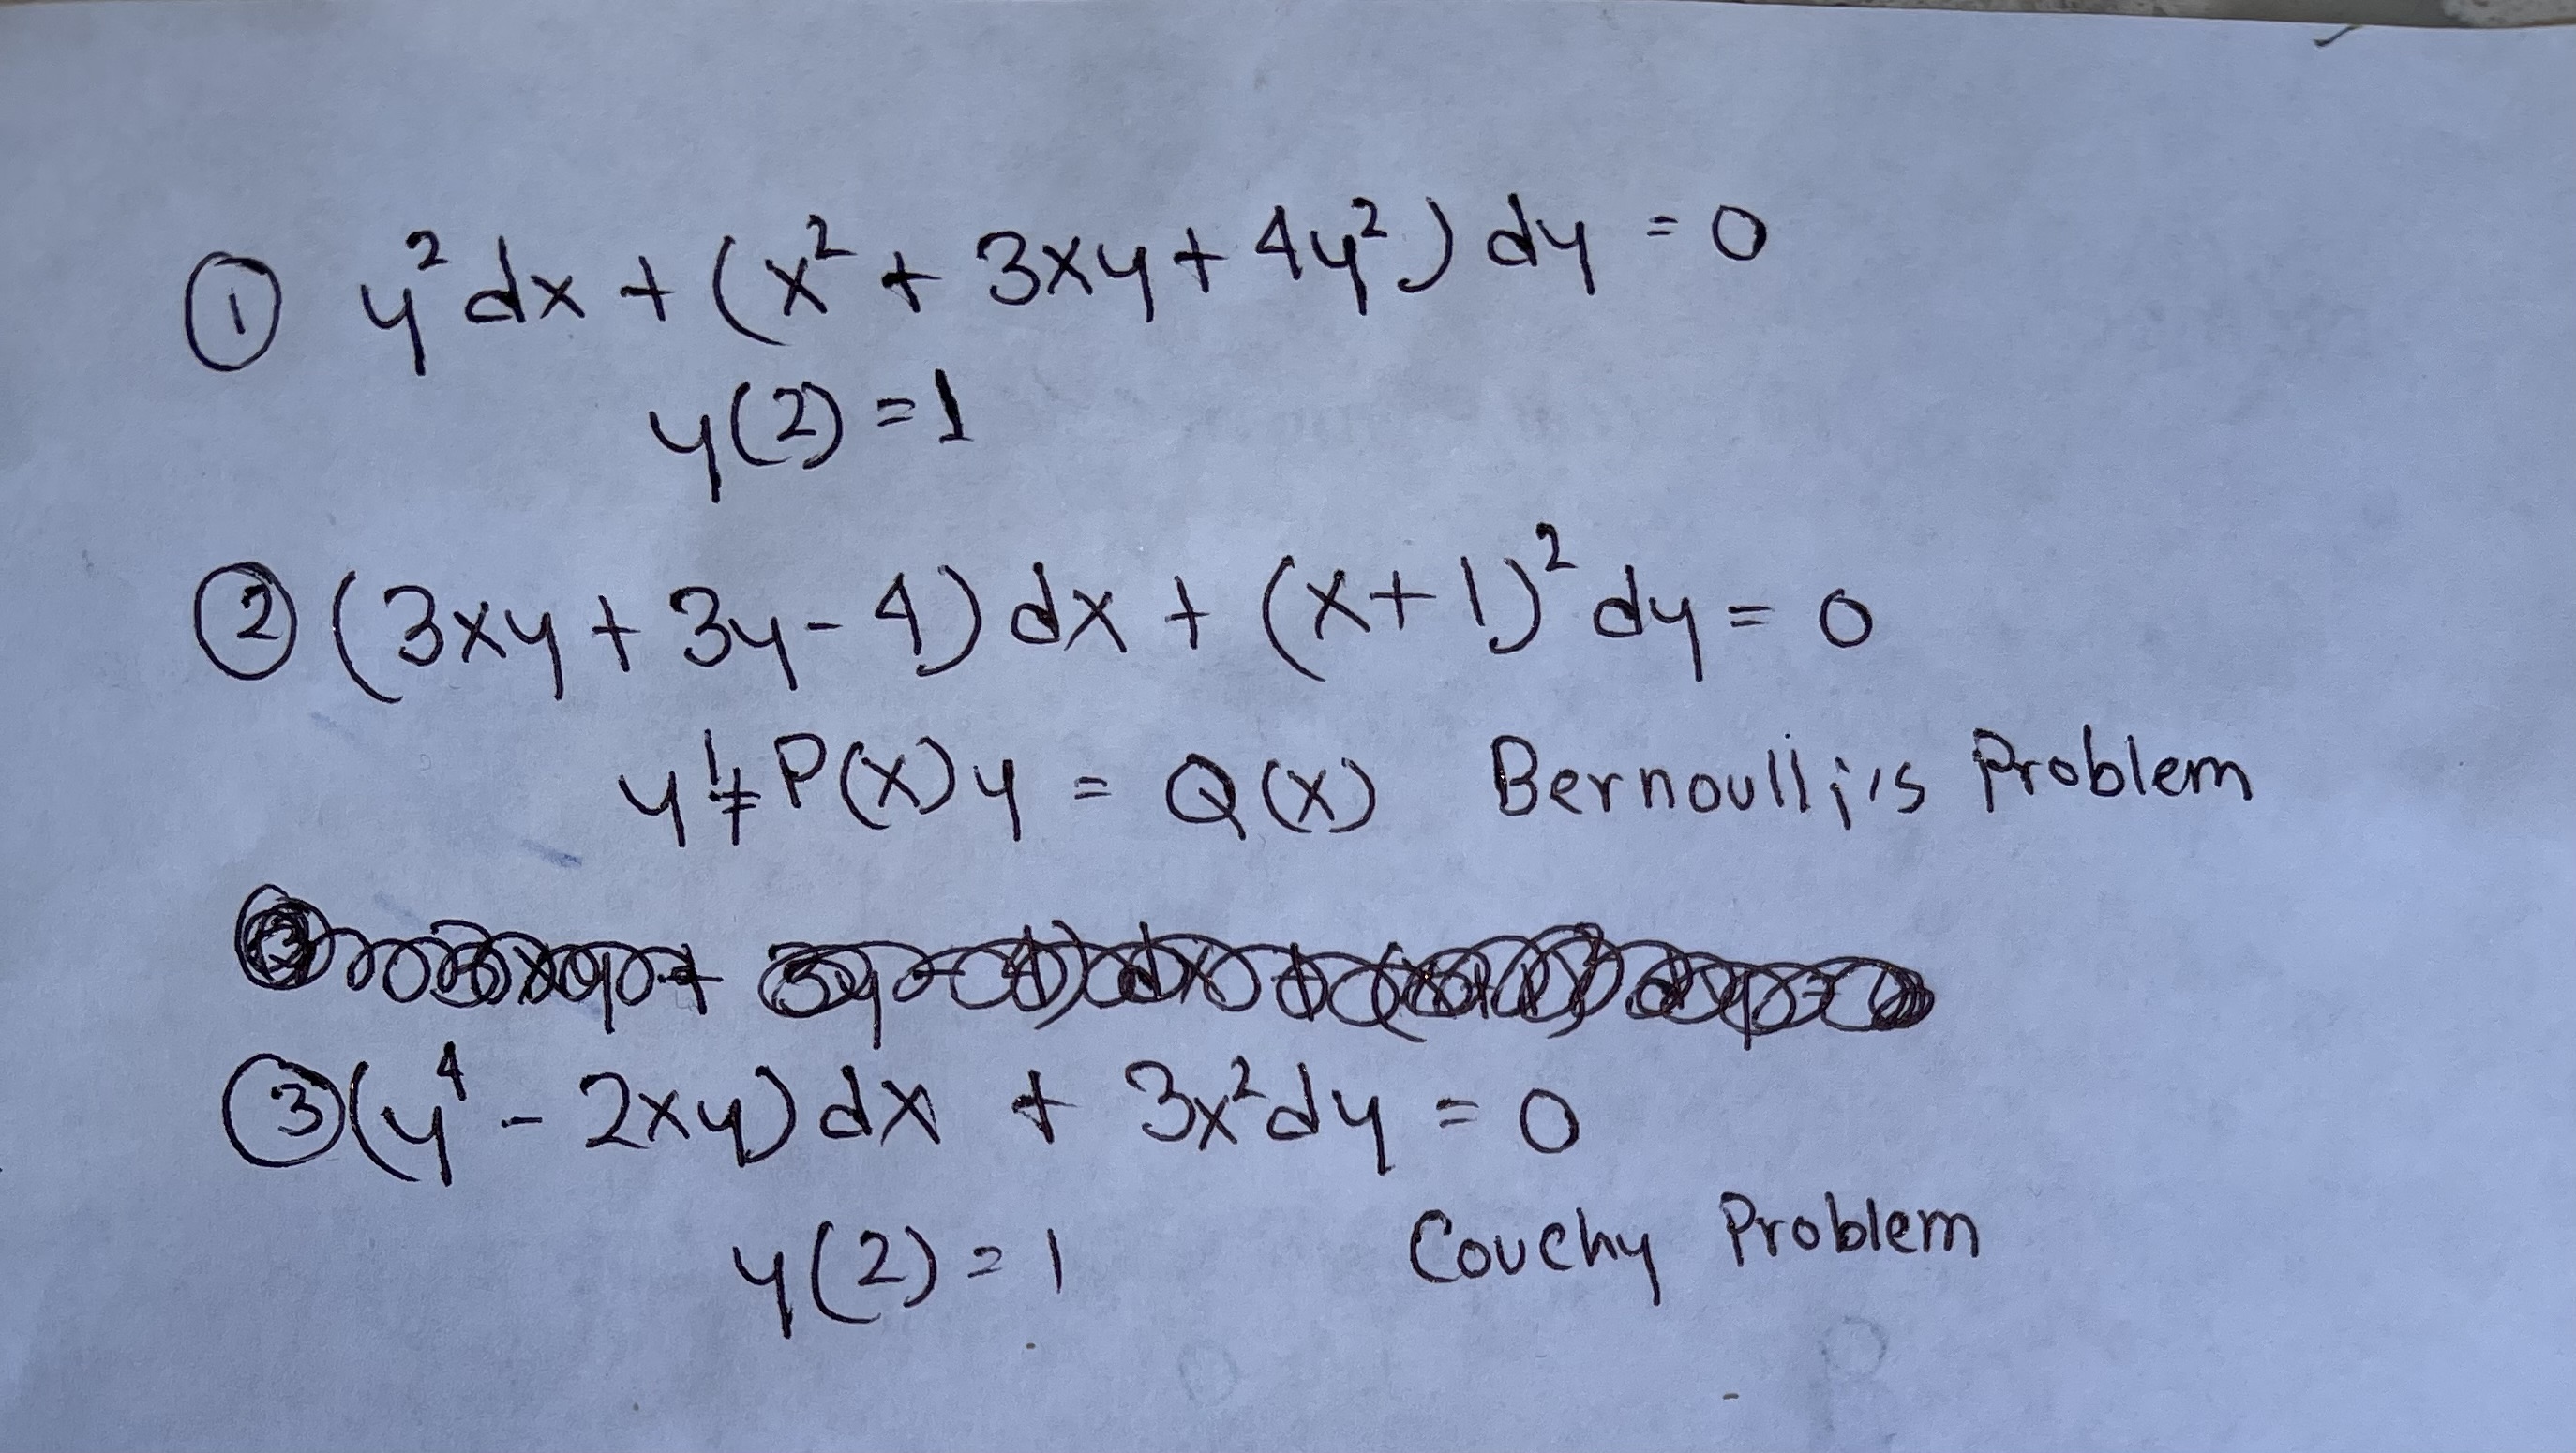 ① y²dx + (x² + 3xy + 4y²) dy = 0
y(2) = 1
② (3xy + 3y - 4) dx + (x+1)² dy = 0
y' + P(x)y = Q(x) Bernoulli's Problem
③ (y⁴ - 2xy) dx + 3x²dy = 0
y(2) = 1 Couchy Problem